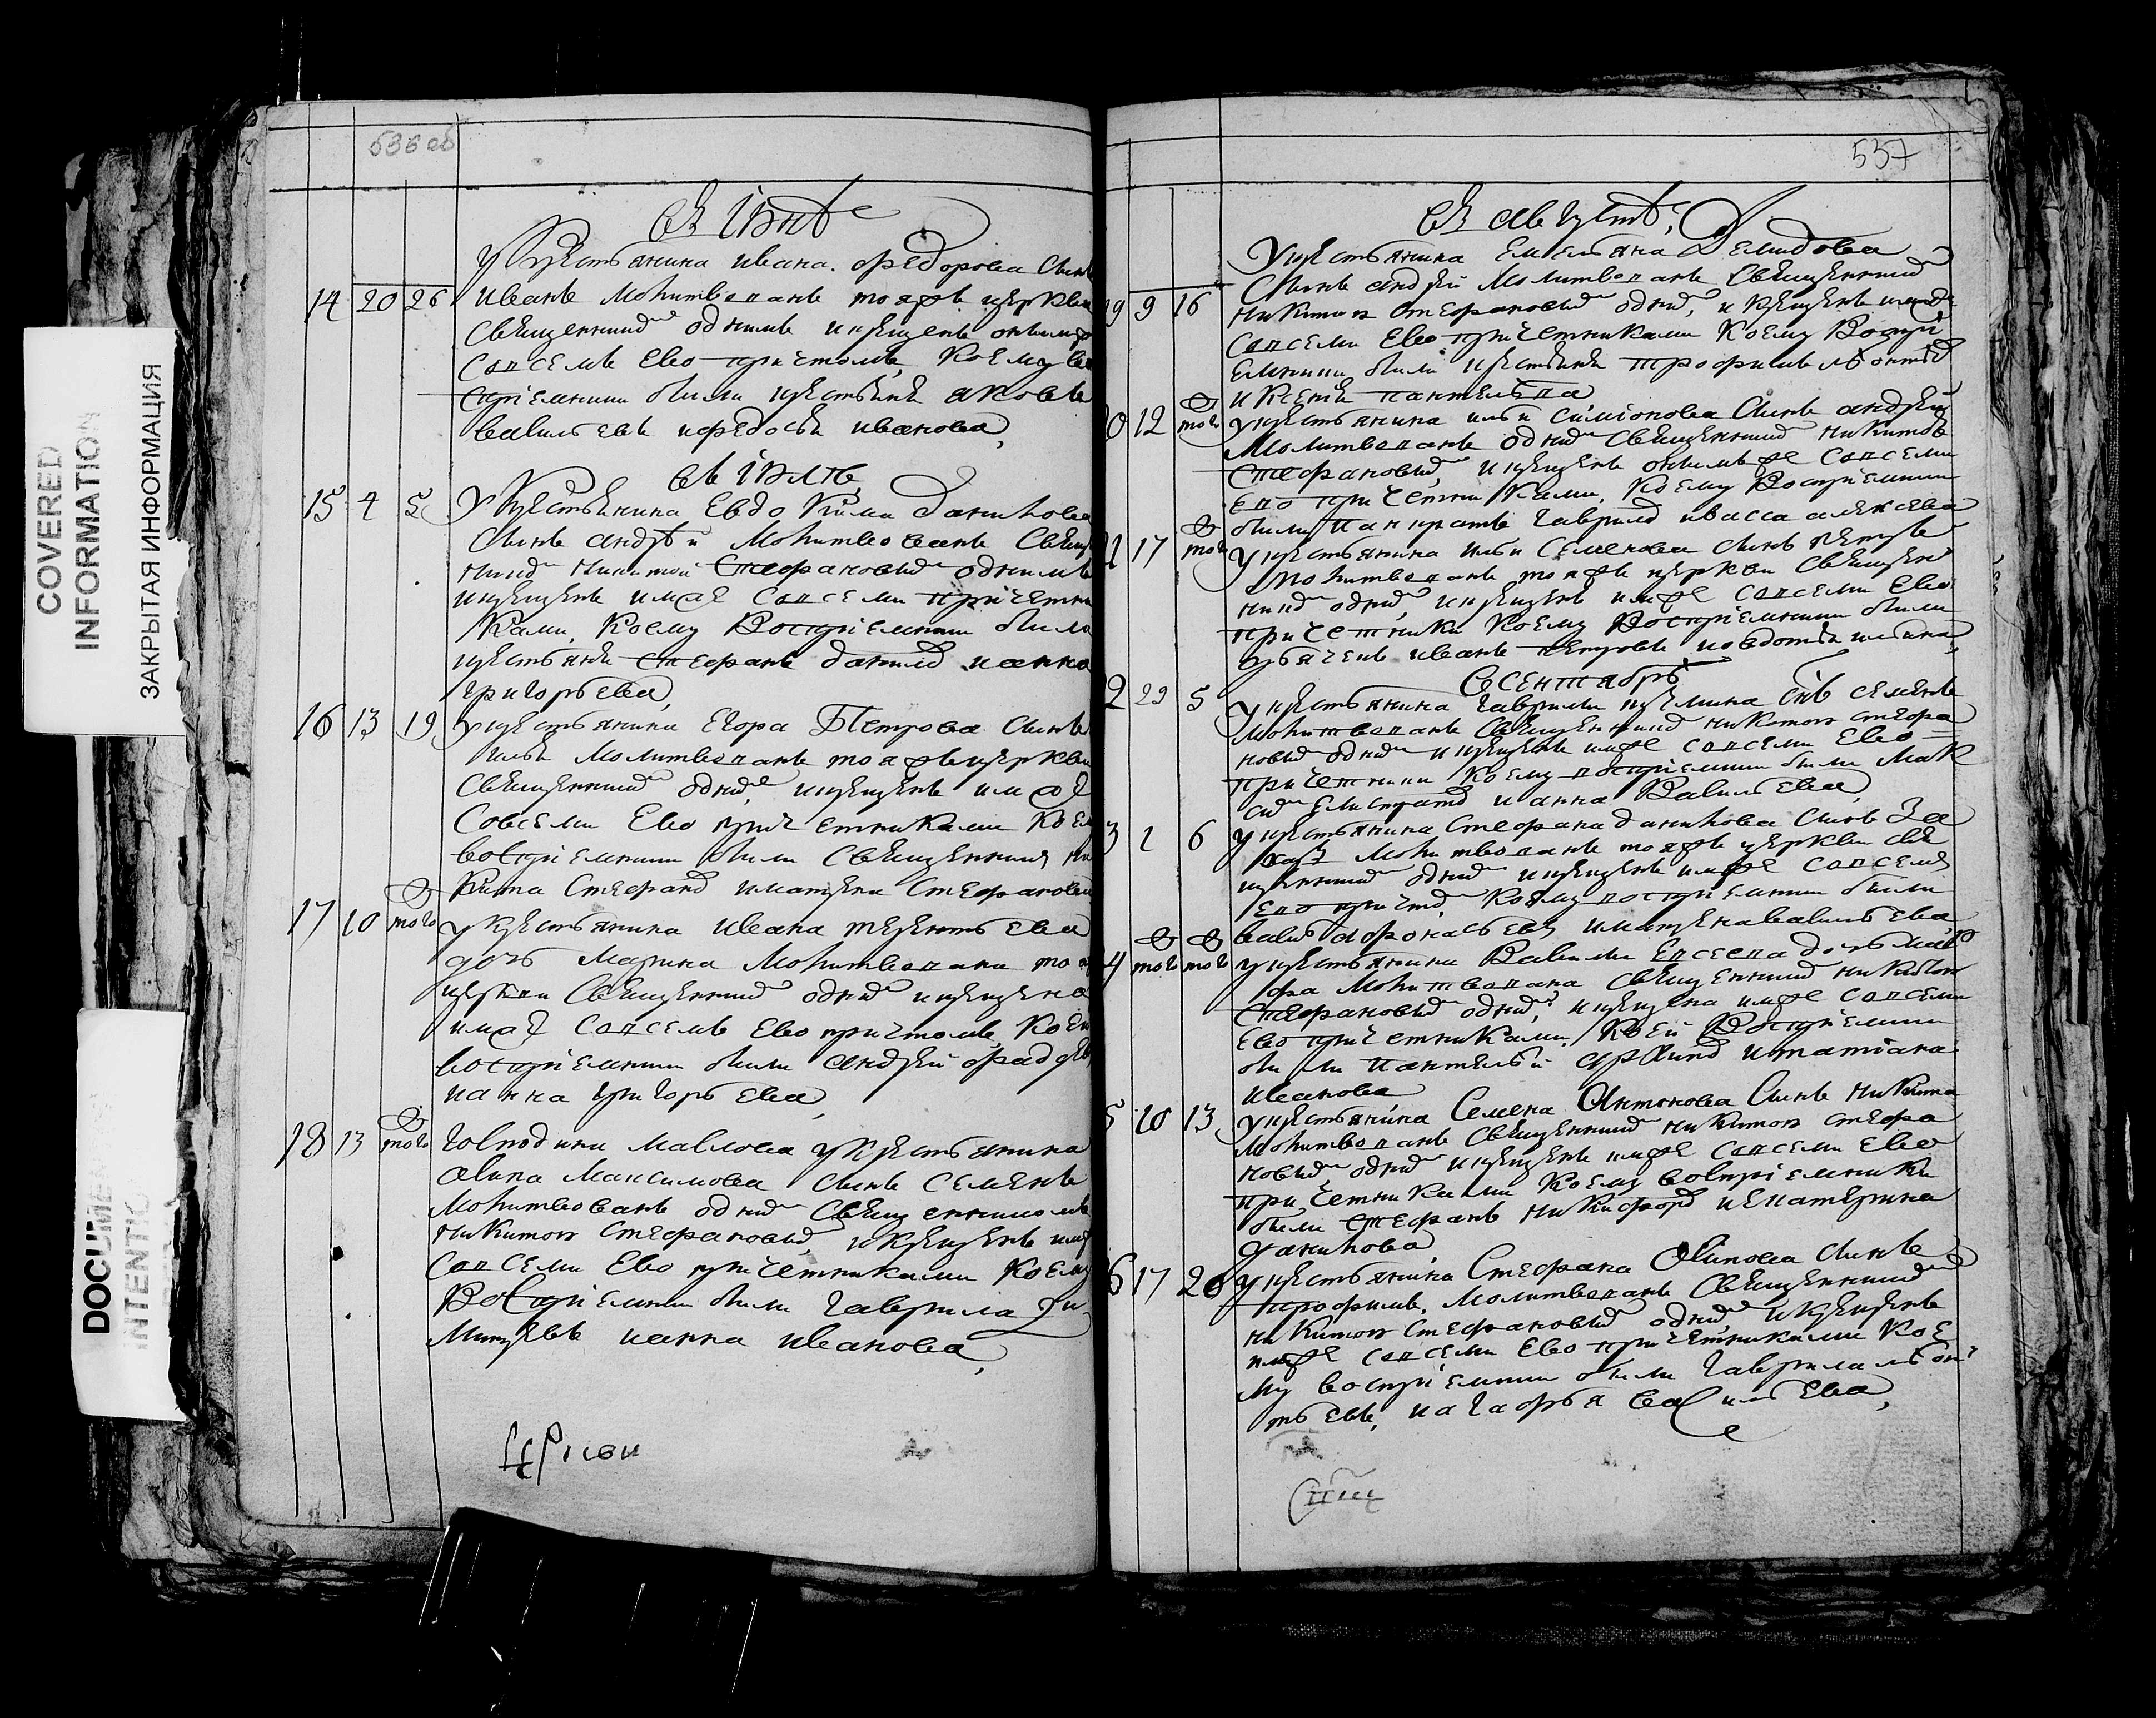 COVERED
INFORMATION
ЗАКРЫТАЯ ИНФОРМАЦИЯ
536 об
въ Iюнѣ
14 20 26
У крестьянина Ивана Федорова сынъ
Иванъ молитвованъ тояже церкви
священникомъ однимъ и крещенъ онымже
совсемъ ево причтомъ, коему во
спрiемники были крестьянѣ Яковъ
Вавильевъ и Федосья Иванова
въ Iюлѣ
15 4 5
У крестьянина Евдокима Данилова
сынъ Андрѣй молитвованъ свящ
никомъ Никитой Стефановымъ однимъ
и крещенъ имже совсеми причетни
ками, коему воспрiемники были
крестьяне Стефанъ Данилов и Анна
Григорьева
16 13 19
У крестьянина Егора Петрова сынъ
Илья молитвованъ тояже церкви
священникомъ однимъ и крещенъ имже
совсеми ево причетниками коему
воспрiемники были священникъ Ни
кита Стефанов и Матрена Стефанова
17 10 того
У крестьянина Ивана Терентьева
дочь Марина молитвована тояже
церкви священникомъ однимъ и крещена
имже совсемъ ево причтомъ, коей
воспрiемники были Андрей Фадѣев
и Анна Григорьева
18 13 того
Господина Маслова у крестьянина
Осипа Максимова сынъ Семенъ
молитвованъ однимъ священникомъ
Никитою Стефановымъ, и крещенъ имже
совсеми ево причетниками коему
воспрiемники были Гаврила Ди
митревъ и Анна Иванова
Церкви
DOCUME
INTENTIC
537
въ Августѣ
9 9 16
У крестьянина Емельяна Демидова
сынъ Андрей молитвованъ священникомъ
Никитою Стефановымъ однимъ, и крещенъ имже
совсеми ево причетниками коему воспрi
емники были крестьяне Трофимъ Леонтьев
и Ксенiя Пантелѣева
0 12 того
У крестьянина Ильи Симiонова сынъ Андрей
молитвованъ однимъ священникомъ Никитою
Стефановымъ, и крещенъ онымъже совсеми
ево причетниками, коему воспрiемники
были Панкратъ Гаврилов и Васса Алексеева
1 17 того
У крестьянина Ильи Семенова сынъ Петръ
молитвованъ тояже церкви священ
никомъ однимъ, и крещенъ имже совсеми ево
причетники коему воспрiемники были
Иванъ Петровъ и Ильина
Въ Сентябрѣ
2 29 5
У крестьянина Гаврилы сынъ Семенъ
молитвованъ священникомъ Никитою Стефа
новымъ однимъ и крещенъ имже совсеми ево
причетники коему воспрiемники были Мак
сим Елистратов и Анна Вавильева
3 1 6
У крестьянина Стефана Данилова сынъ За
хар молитвованъ тояже церкви свя
щенникомъ однимъ и крещенъ имже совсемъ
ево причтомъ, коему воспрiемники были
Афонасьевъ и Матрена Вавильева
4 того того
У крестьянина Вавилы Евсеева дочь Мав
ра молитвована священникомъ Никитою
Стефановымъ однимъ, и крещена имже совсеми
ево причетниками, коей воспрiемники
были Пантелѣй и Татiана
Иванова
5 10 13
У крестьянина Семена Антонова сынъ Никита
молитвованъ священникомъ Никитою Стефа
новымъ однимъ и крещенъ имже совсеми ево
причетниками коему воспрiемники
были Стефанъ Никифоров и Екатерина
Данилова
6 17 20
У крестьянина Стефана Осипова сынъ
Трофимъ, молитвованъ священникомъ
Никитою Стефановымъ однимъ, и крещенъ
имже совсеми ево причетниками кое
му воспрiемники были Гаврила Леон
тьевъ, и Агафья Васильева